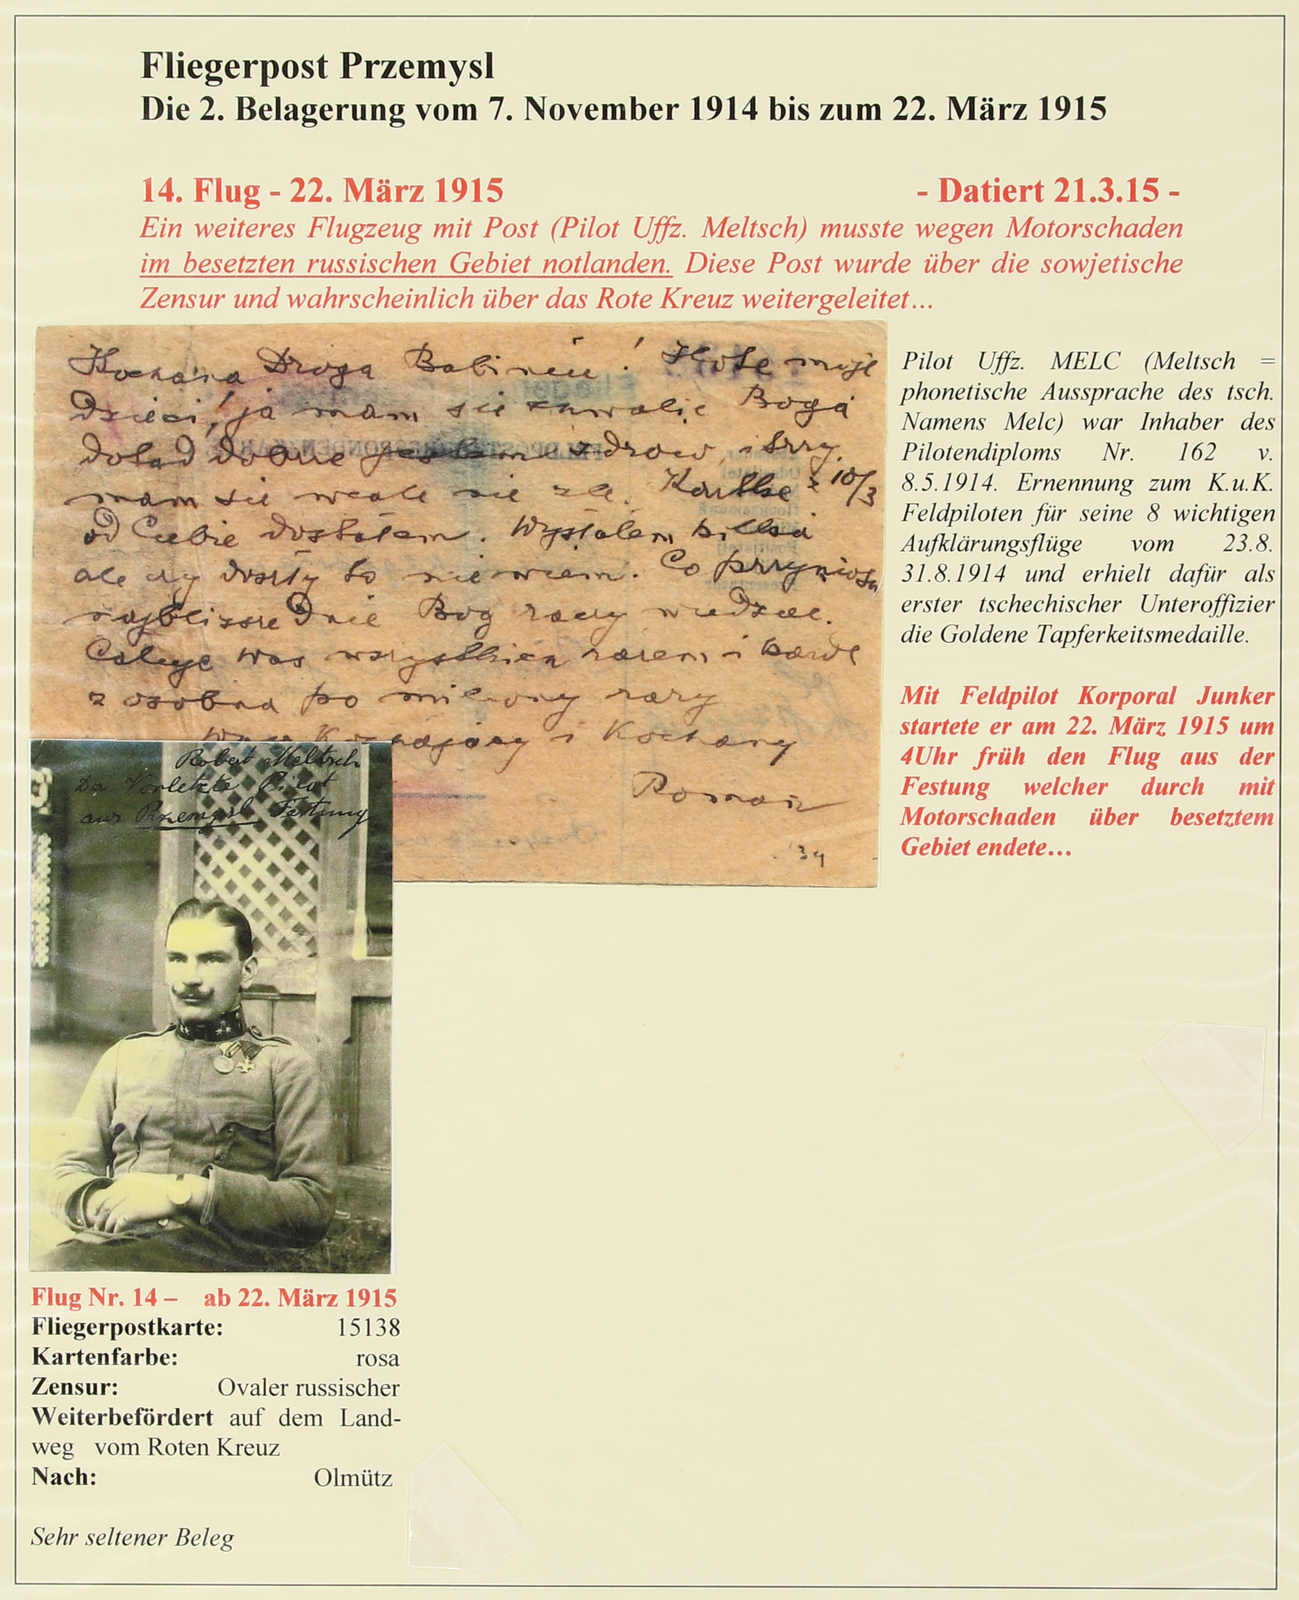 Fliegerpost Przemysl
Die 2. Belagerung vom 7. November 1914 bis zum 22. März 1915
14. Flug - 22. März 1915 - Datiert 21.3.15 -
Ein weiteres Flugzeug mit Post (Pilot Uffz. Meltsch) musste wegen Motorschaden
im besetzten russischen Gebiet notlanden. Diese Post wurde über die sowjetische
Zensur und wahrscheinlich über das Rote Kreuz weitergeleitet…
Kochana Droga Babiniu! Złote moje
Dzieci, ja mam się chwalić Boga
Dotąd dobrze jestem zdrów, i
mam się wcale nie źle. Kartkę z 10/3
od Ciebie dostałem. Wysłałem
ale czy doszły to nie wiem. Co przyniosą
najbliższe Dnie Bóg raczy wiedzieć.
Całuję Was wszystkich razem i
z osobna po miliony razy
Wasz Kochający i Kochany
Roman
34
Robert Meltsch
Der Vorletzte Pilot
aus Przemysl Festung
Pilot Uffz. MELC (Meltsch =
phonetische Aussprache des tsch.
Namens Melc) war Inhaber des
Pilotendiploms Nr. 162 v.
8.5.1914. Ernennung zum K.u.K.
Feldpiloten für seine 8 wichtigen
Aufklärungsflüge vom 23.8.
31.8.1914 und erhielt dafür als
erster tschechischer Unteroffizier
die Goldene Tapferkeitsmedaille.
Mit Feldpilot Korporal Junker
startete er am 22. März 1915 um
4Uhr früh den Flug aus der
Festung welcher durch mit
Motorschaden über besetztem
Gebiet endete…
Flug Nr. 14 – ab 22. März 1915
Fliegerpostkarte: 15138
Kartenfarbe: rosa
Zensur: Ovaler russischer
Weiterbefördert auf dem Land-
weg vom Roten Kreuz
Nach: Olmütz
Sehr seltener Beleg